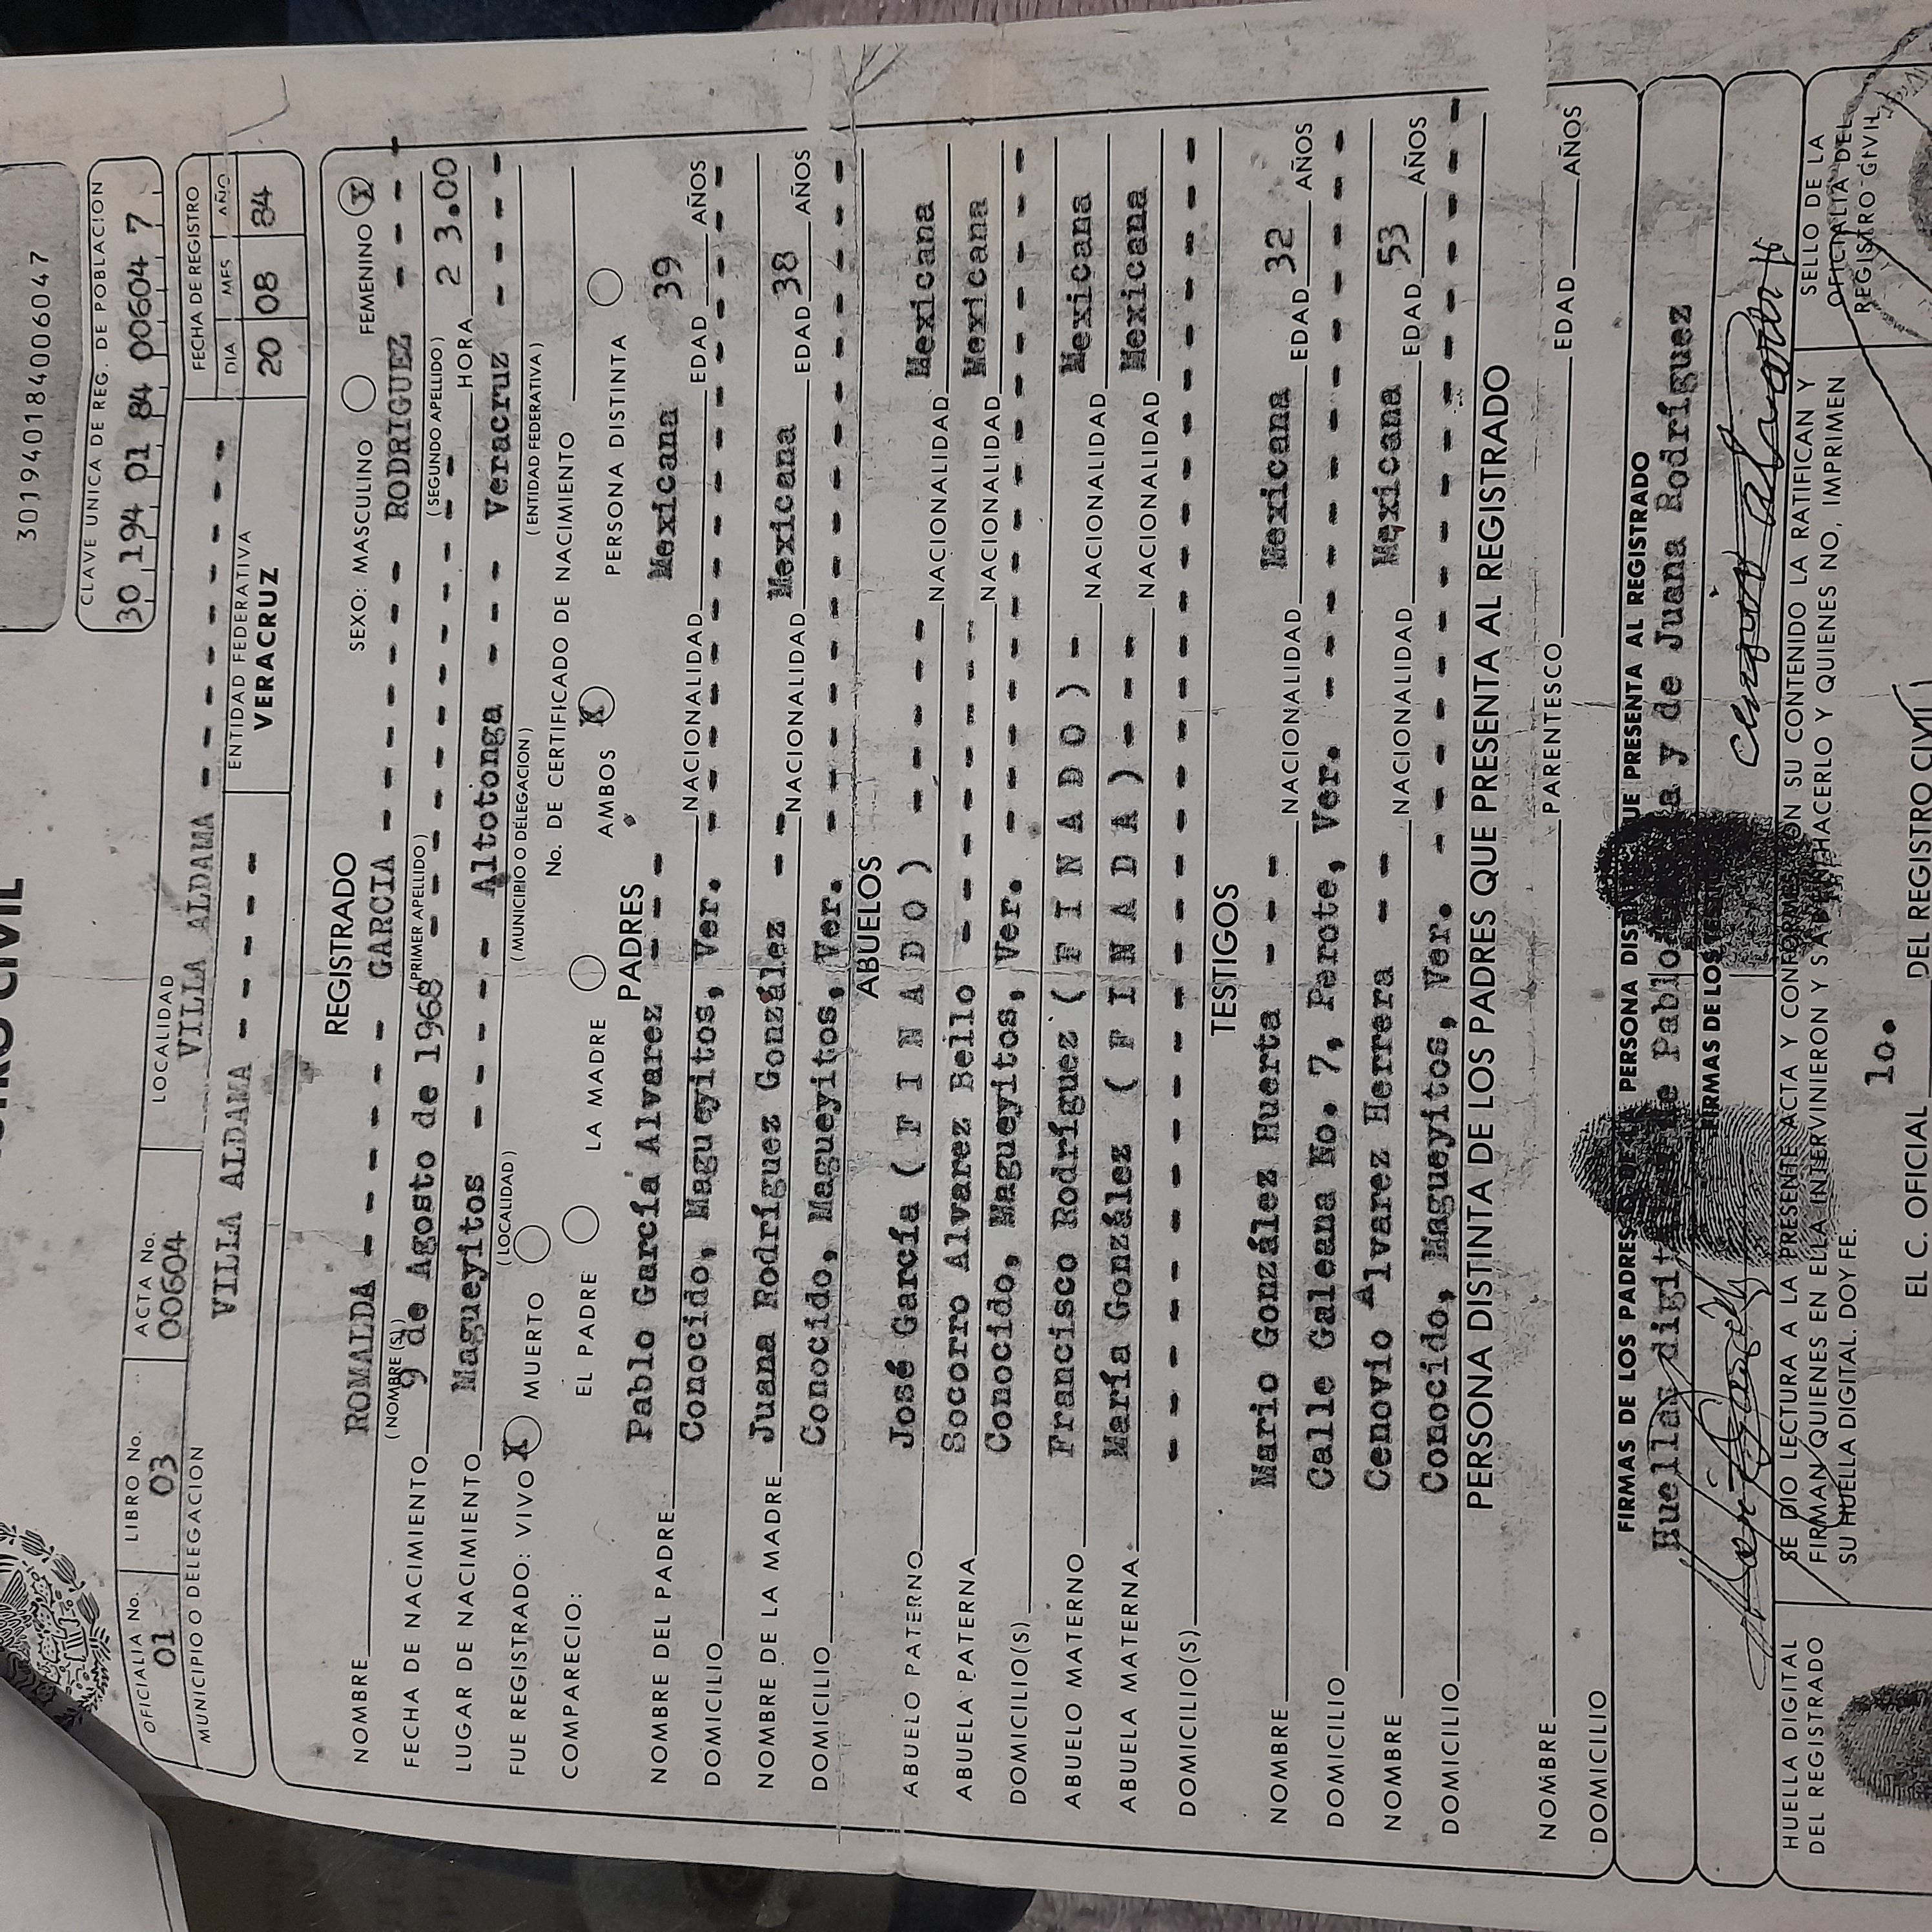 301940184006047
CLAVE UNICA DE REG. DE POBLACION
30 194 01 84 00604 7
OFICIALIA No. LIBRO No. ACTA No. LOCALIDAD FECHA DE REGISTRO
01 03 00604 VILLA ALDAMA DIA MES AÑO
MUNICIPIO O DELEGACION ENTIDAD FEDERATIVA
VILLA ALDAMA VERACRUZ 20 08 84
REGISTRADO SEXO: MASCULINO FEMENINO X
NOMBRE ROMALDA GARCIA RODRIGUEZ
(NOMBRE (S)) (PRIMER APELLIDO) (SEGUNDO APELLIDO)
FECHA DE NACIMIENTO 9 de Agosto de 1968 HORA 2 3.00
LUGAR DE NACIMIENTO Magueyitos Altotonga Veracruz
(LOCALIDAD) (MUNICIPIO O DELEGACION) (ENTIDAD FEDERATIVA)
FUE REGISTRADO: VIVO X MUERTO No. DE CERTIFICADO DE NACIMIENTO
COMPARECIO: EL PADRE LA MADRE AMBOS X PERSONA DISTINTA
PADRES
NOMBRE DEL PADRE Pablo García Alvarez NACIONALIDAD Mexicana EDAD 39 AÑOS
DOMICILIO Conocido, Magueyitos, Ver.
NOMBRE DE LA MADRE Juana Rodríguez González NACIONALIDAD Mexicana EDAD 38 AÑOS
DOMICILIO Conocido, Magueyitos, Ver.
ABUELOS
ABUELO PATERNO José García ( F I N A D O ) NACIONALIDAD Mexicana
ABUELA PATERNA Socorro Alvarez Bello NACIONALIDAD Mexicana
DOMICILIO(S) Conocido, Magueyitos, Ver.
ABUELO MATERNO Francisco Rodríguez ( F I N A D O ) NACIONALIDAD Mexicana
ABUELA MATERNA María González ( F I N A D A ) NACIONALIDAD Mexicana
DOMICILIO(S)
TESTIGOS
NOMBRE Mario González Huerta NACIONALIDAD Mexicana EDAD 32 AÑOS
DOMICILIO Calle Galeana No. 7, Perote, Ver.
NOMBRE Cenovio Alvarez Herrera NACIONALIDAD Mexicana EDAD 53 AÑOS
DOMICILIO Conocido, Magueyitos, Ver.
PERSONA DISTINTA DE LOS PADRES QUE PRESENTA AL REGISTRADO
NOMBRE PARENTESCO EDAD AÑOS
DOMICILIO
FIRMAS DE LOS PADRES PERSONA DISTINTA QUE PRESENTA AL REGISTRADO
Huellas de Pablo y de Juana Rodríguez
FIRMAS DE LOS
SE DIO LECTURA A LA PRESENTE ACTA Y CONFORMES CON SU CONTENIDO LA RATIFICAN Y
FIRMAN QUIENES EN ELLA INTERVINIERON Y SABEN HACERLO Y QUIENES NO, IMPRIMEN
SU HUELLA DIGITAL. DOY FE.
HUELLA DIGITAL
DEL REGISTRADO
SELLO DE LA
OFICIALIA DEL
REGISTRO CIVIL
EL C. OFICIAL 1o. DEL REGISTRO CIVIL